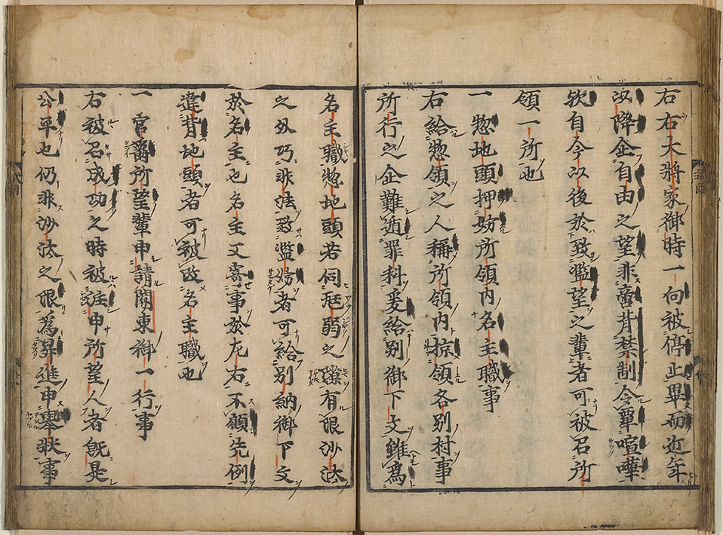 右右大將家御時一向被停止畢而近年
以降企自由之望非啻背禁制令覃喧嘩
歟自今以後於致濫望之輩者可被召所
領一所也
一 惣地頭押妨所領内名主職事
右給惣領之人稱所領内掠領各別村事
所行之企難遁罪科爰給別御下文雖爲
名主職惣地頭若伺尫弱之隙有限沙汰
之外巧非法致濫妨者可給別納御下文
於名主也名主又寄事於左右不顧先例
違背地頭者可被改名主職也
一 官爵所望輩申請關東御一行事
右被召成功之時被註申所望人者既是
公平也仍非沙汰之限爲昇進申擧状事